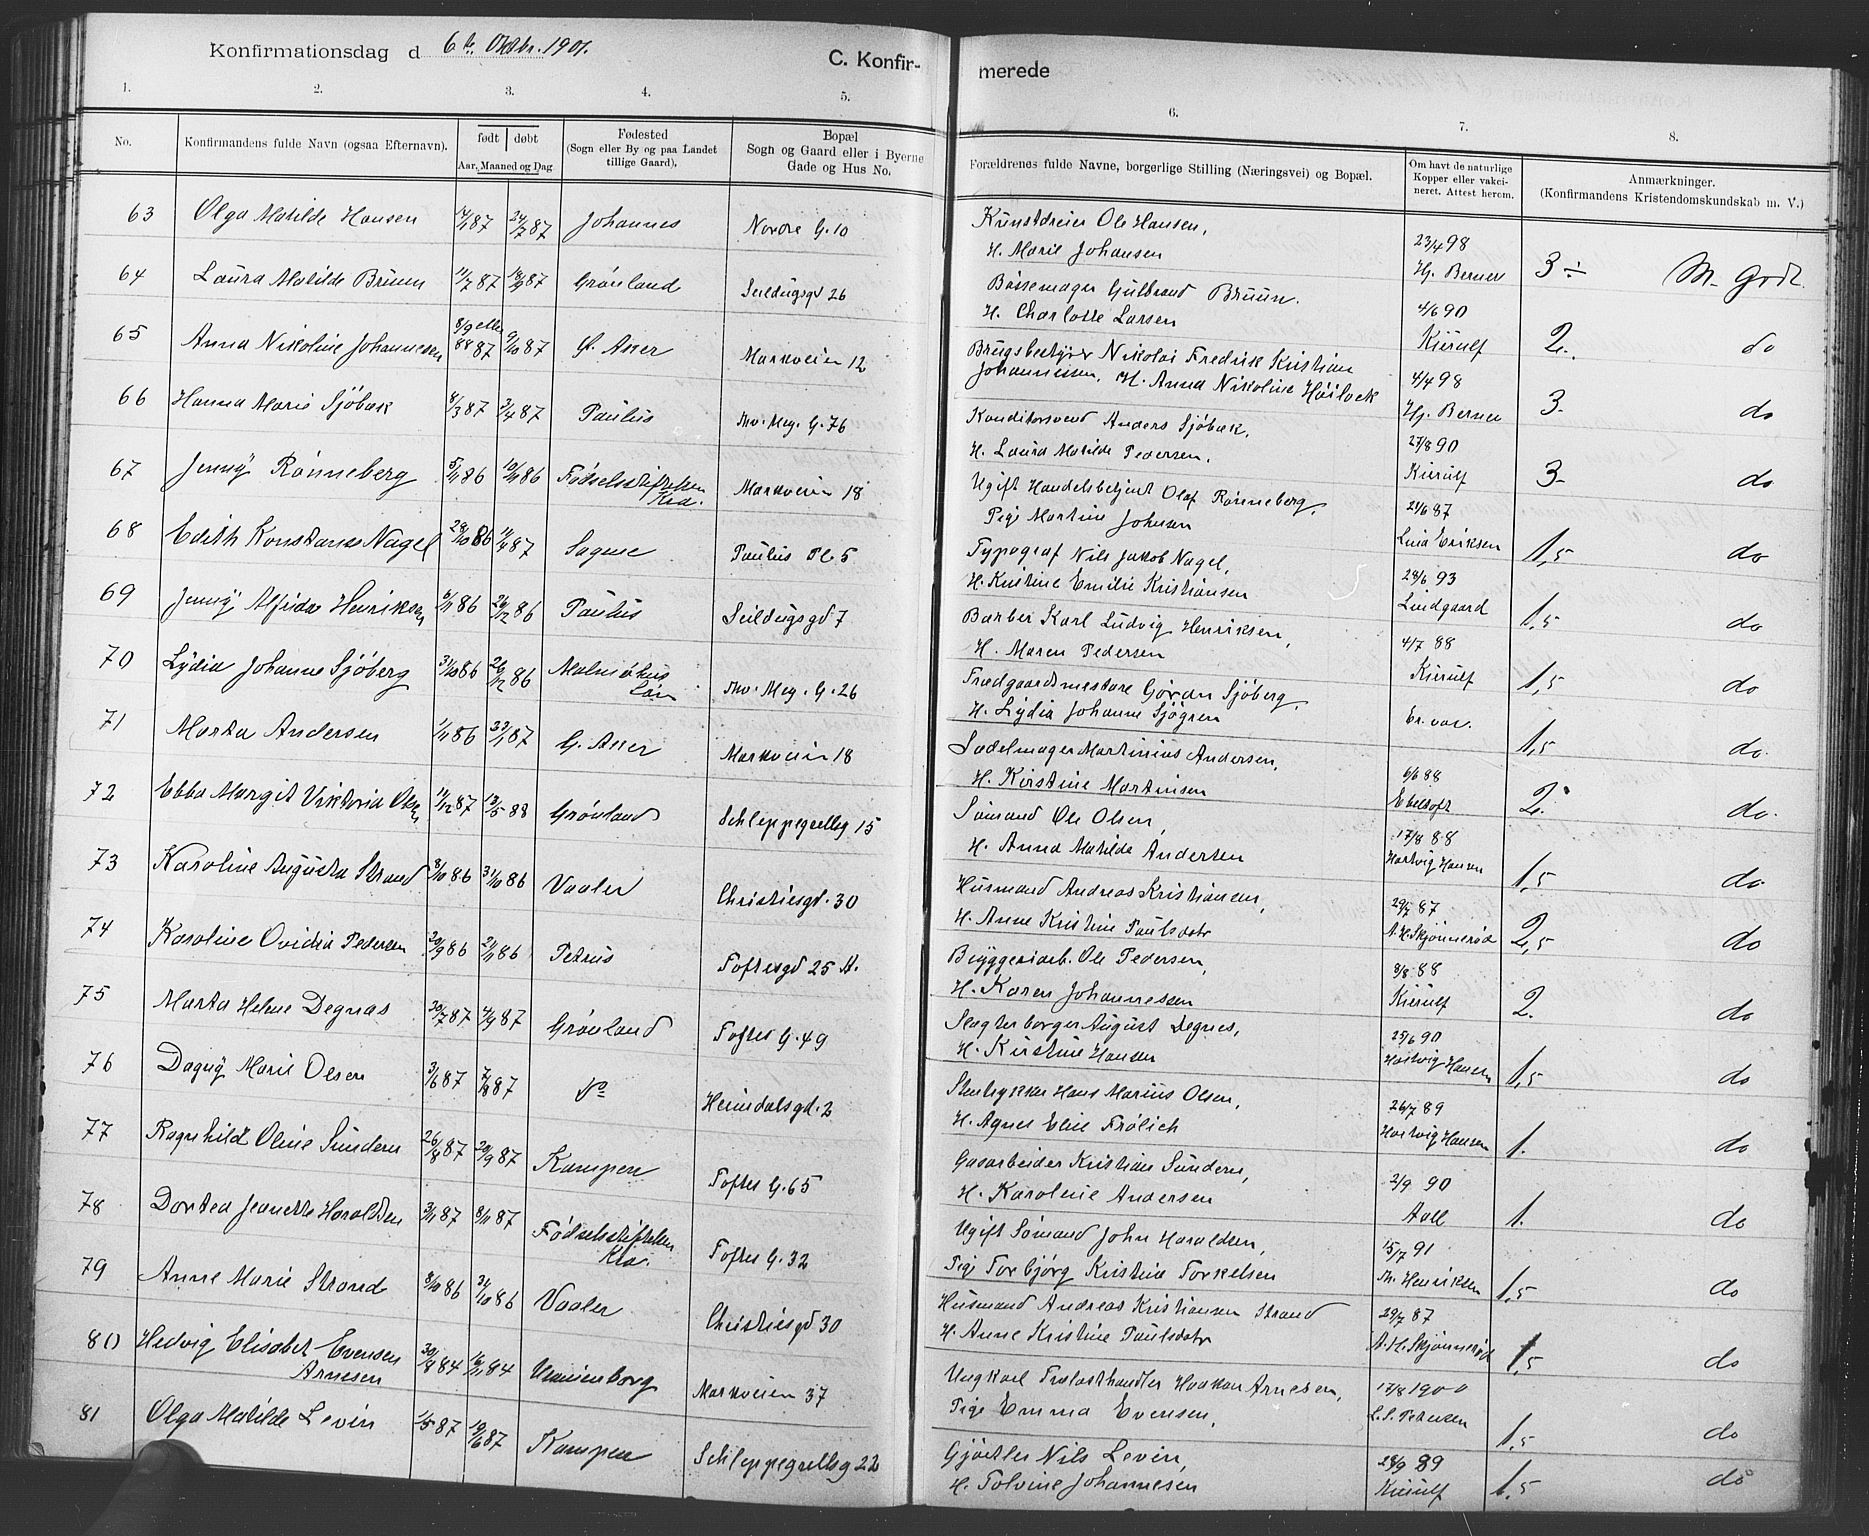 Konfirmationsdag d 6te Oktbr. 1901.
C. Konfir-
merede
1. 2. 3. 4. 5. 6. 7. 8.
No.
Konfirmandens fulde Navn (ogsaa Efternavn).
født døbt
Aar, Maaned og Dag
Fødested
(Sogn eller By og paa Landet
tillige Gaard).
Bopæl
Sogn og Gaard eller i Byerne
Gade og Hus No.
Forældrenes fulde Navne, borgerlige Stilling (Næringsvei) og Bopæl.
Om havt de naturlige
Kopper eller vakci-
neret. Attest herom.
Anmærkninger.
(Konfirmandens Kristendomskundskab m. V.)
63 Olga Matilde Hansen 87 24/7 87 Johannes Nordre G. 10
Kunstdreier Ole Hansen,
H. Marie Johansen 23/4 98 Hj. Berner 3÷ M. Godt
64 Laura Matilde Bruun 11/7 87 18/9 87 Grønland Seildugsgd 26
Børsemager Gulbrand Bruun.
H. Charlotte Larsen 4/6 90 Kierulf 2. do
65 Anna Nikoline Johannesen 8/9 eller 87 9/10 87 Ø. Aker Markveien 12
Brugsbestyrer Nikolai Fredrik Kristian
Johannessen, H. Anna Nikoline Høilock 4/4 98 Hj. Berner 3- do
66 Hanna Marie Sjöbæk 8/3 87 3/4 87 Paulus Thv. Mey. G. 76
Konditorsvend Anders Sjöbæk,
H. Laura Matilde Pedersen. 27/8 90 Kierulf 3- do
67 Jenny Rønneberg 5/11 86 10/11 86 Fødselsstiftelsen
Kra. Markveien 18
Ugift Handelsbetjent Olaf Rønneberg,
Pige Martine Johnsen 21/6 87 Lina Eriksen 1,5 do
68 Edith Konstanse Nagel 28/10 86 11/4 87 Sagene Paulus Pl. 5
Typograf Nils Jakob Nagel,
H. Kristine Emilie Kristiansen 28/6 93 Lindgaard 1,5 do
69 Jenny Alfida Henriksen 6/11 86 26/12 86 Paulus Seildugsgd 7
Barber Karl Ludvig Henriksen,
H. Maren Pedersen 4/7 88 Kierulf 1,5 do
70 Lydia Johanne Sjøberg 31/10 86 26/12 86 Malmöhus
Län Thv. Mey. G. 26
Trædgaardsmestare Göran Sjøberg,
H. Lydia Johanne Sjögren Er. vac. 1,5 do.
71 Marta Andersen 1/11 86 23/1 87 G. Aker Markveien 18
Sadelmager Martinius Andersen,
H. Kirstine Martinsen 6/6 88 Ebeltoft 2. do.
72 Ebba Margit Viktoria Olsen 11/12 87 13/5 88 Grønland Schleppegrellsg 15
Sømand Ole Olsen,
H. Anna Matilde Andersen 17/8 88 Hartvig Hansen 1,5 do.
73 Karoline Augusta Strand 8/10 86 31/10 86 Vaaler Christiesgd. 30
Husmand Andreas Kristiansen,
H. Anne Kristine Paulsdatr 29/7 87 A. H. Skjønnerød 2,5 do
74 Karoline Ovidia Pedersen 20/9 86 21/11 86 Petrus Toftesgd 25 A.
Bryggeriarb. Ole Pedersen,
H. Karen Johannessen 8/8 88 Kierulf 2. do
75 Marta Helene Degnæs 30/7 87 4/9 87 Grønland Toftes G. 49
Slagterborger August Degnes,
H. Kirstine Hansen 25/6 90 Hartvig Hansen 1,5 do
76 Dagny Marie Olsen 3/6 87 7/8 87 do Heimdalsgd. 2
Stenhykker Hans Marius Olsen,
H. Agnes Elise Frölich 26/7 89 Hartvig Hansen 1. do
77 Ragnhild Oline Sundem 26/8 87 20/9 87 Kampen Toftes G. 65
Gasarbeider Kristian Sundem,
H. Karoline Andersen 2/9 90 Aall 1. do
78 Dortea Jeanette Haraldsen 3/11 87 8/11 87 Fødselsstiftelsen
Kra. Toftes G. 32
Ugift Sømand John Haraldsen,
Pige Torbjørg Kristine Torkelsen 15/7 91 M. Henriksen 1,5 do
79 Anne Marie Strand 8/10 86 31/10 86 Vaaler Christiesgd 30
Husmand Andreas Kristiansen Strand
H. Anne Kristine Paulsdatr 29/7 87 A. H. Skjønnerød 1,5 do
80 Hedvig Elisabet Evensen
Arnesen 30/8 84 16/11 84 Uranienborg Markveien 37
Ungkarl Trælasthandler Haakon Arnesen,
Pige Emma Evensen, 17/8 1900 L. S. Petersen 1,5 do
81 Olga Matilde Levin 1/5 87 19/6 87 Kampen Schleppegrellsg 22
Gjørtler Nils Levin,
H. Tolvine Johannesen 28/9 89 Kierulf 1,5 do